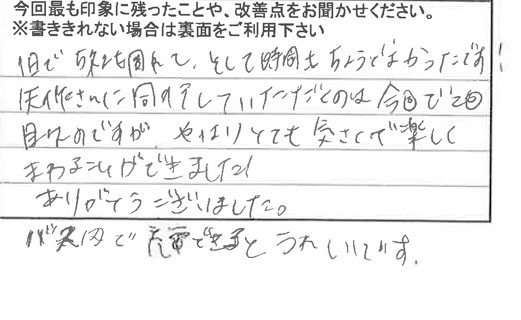 今回最も印象に残ったことや、改善点をお聞かせください。
※書ききれない場合は裏面をご利用下さい
1日で 回れて、そして時間もちょうどよかったです!
さんに同行していただくのは今回で2回
目なのですが、やはりとても気さくで楽しく
まわることができました!
ありがとうございました。
バス内で充電できるとうれしいです。